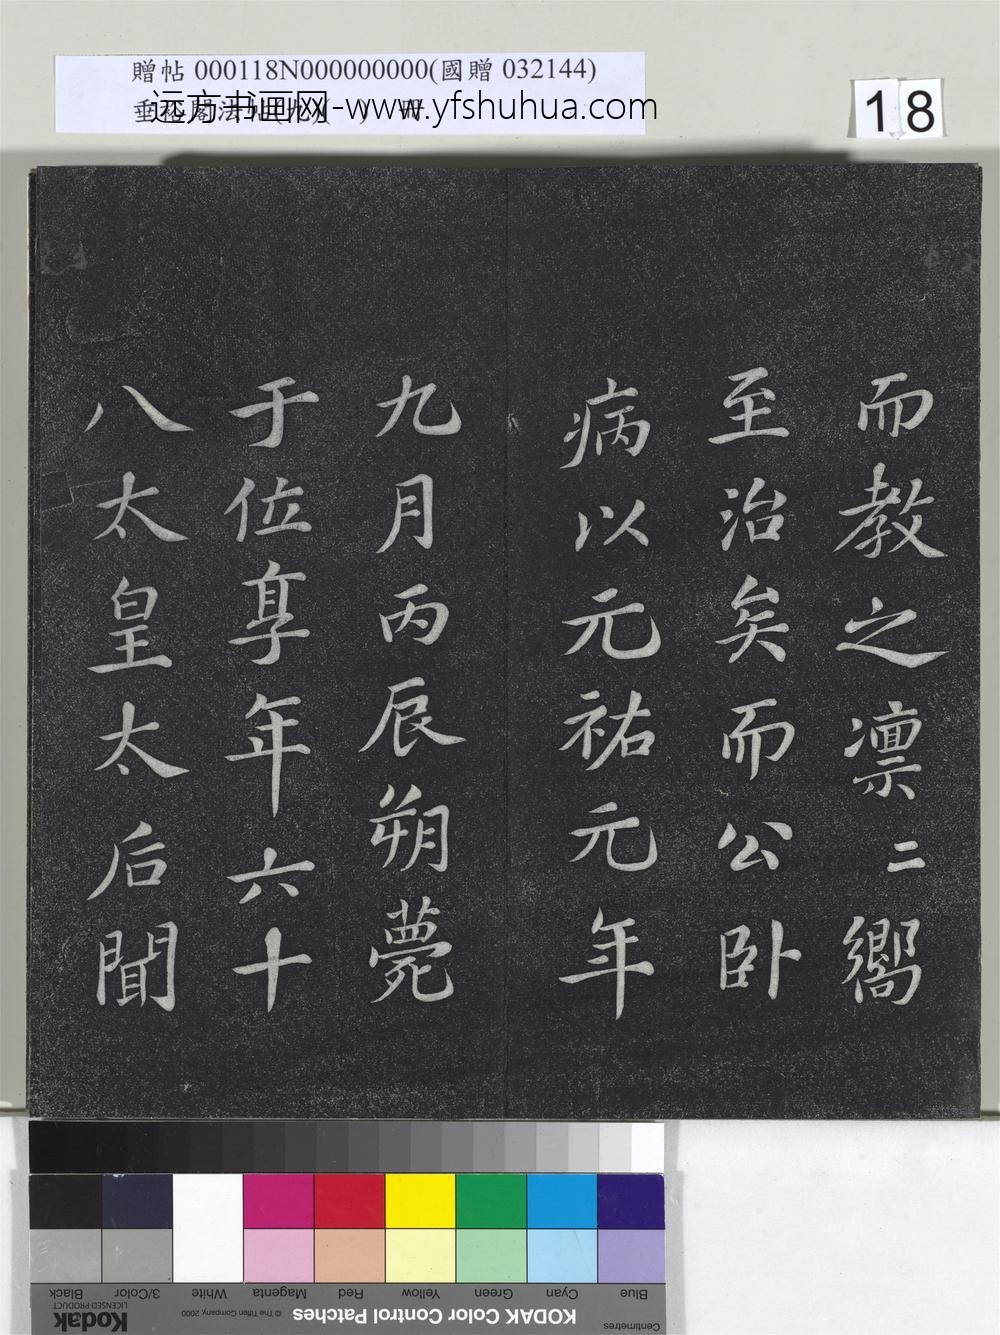 贈帖 000118N000000000(國贈 032144)
远方书画网-www.yfshuhua.com
18
而教之凛二嚮
至治矣而公卧
病以元祐元年
九月丙辰朔薨
于位享年六十
八太皇太后聞
Blue Cyan Green Yellow Red Magenta White 3/Color Black
Centimetres KODAK Color Control Patches © The Tiffen Company, 2000 Kodak
LICENSED PRODUCT